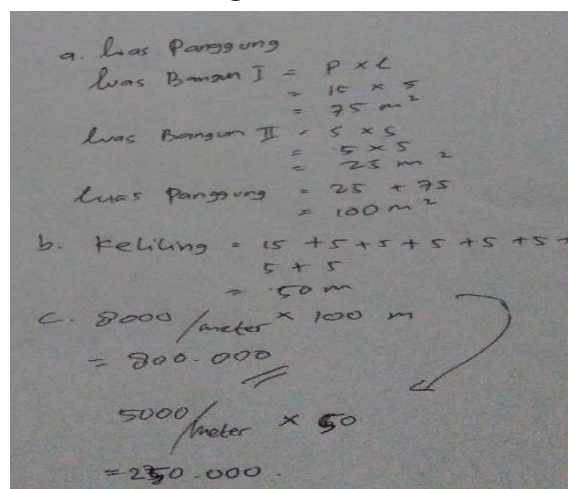 a. Luas Panggung
Luas Bangun I = P x l
= 15 x 5
= 75 m²
Luas Bangun II = 5 x 5
= 5 x 5
= 25 m²
Luas Panggung = 25 + 75
= 100 m²
b. Keliling = 15 +5 +5 +5 +5 +5 +
5 + 5
= 50 m
c. 8000/meter x 100 m
= 800.000
5000/meter x 50
= 250.000.